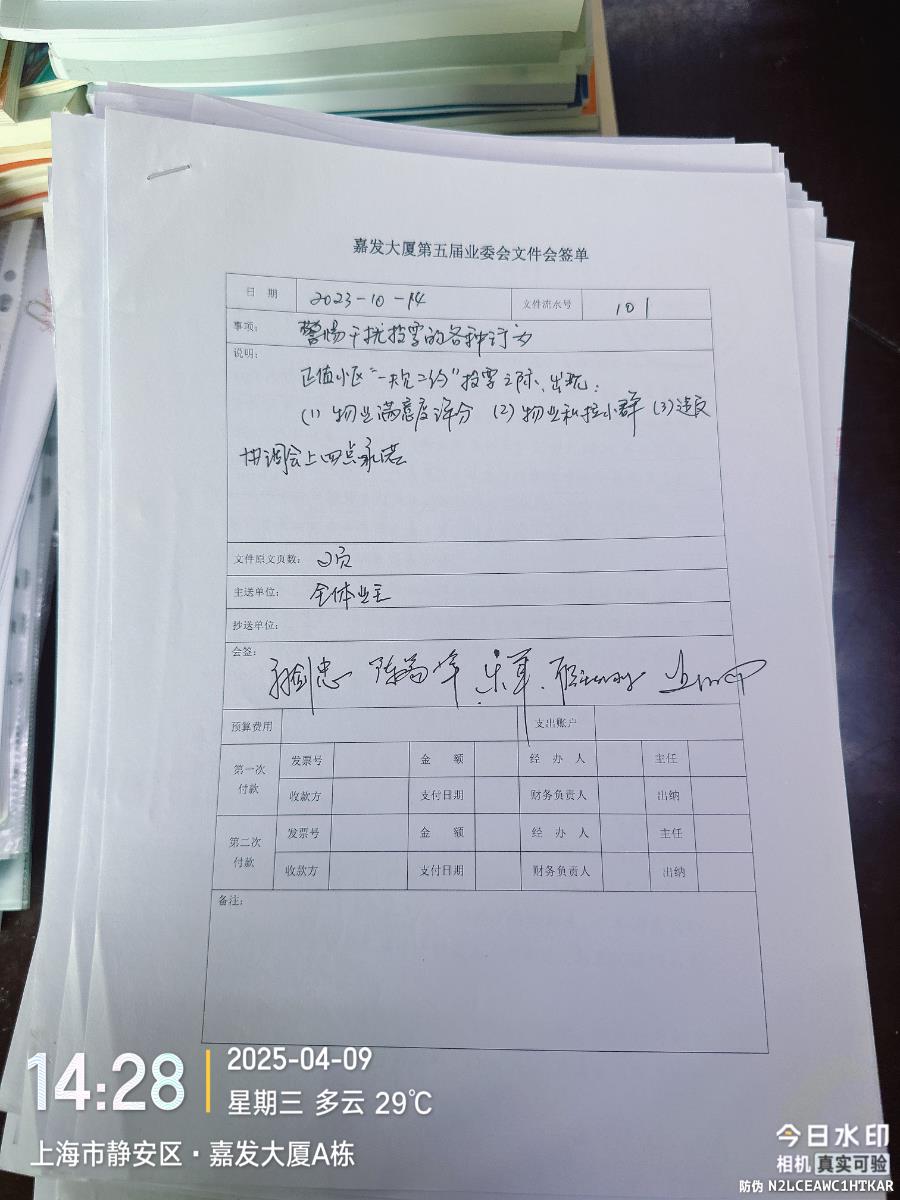 嘉发大厦第五届业委会文件会签单
日 期 2023-10-14 文件流水号 101
事项: 警惕干扰投票的各种行为
说明:
正值小区"一规二约"投票之际、出现:
(1) 物业满意度评分 (2) 物业私拉小群 (3) 违反
协调会上四点承诺
文件原文页数: 2页
主送单位: 全体业主
抄送单位:
会签:
预算费用 支出账户
第一次付款 发票号 金 额 经 办 人 主任
收款方 支付日期 财务负责人 出纳
第二次付款 发票号 金 额 经 办 人 主任
收款方 支付日期 财务负责人 出纳
备注:
14:28 2025-04-09
星期三 多云 29℃
上海市静安区·嘉发大厦A栋
今日水印
相机 真实可验
防伪 N2LCEAWC1HTKAR